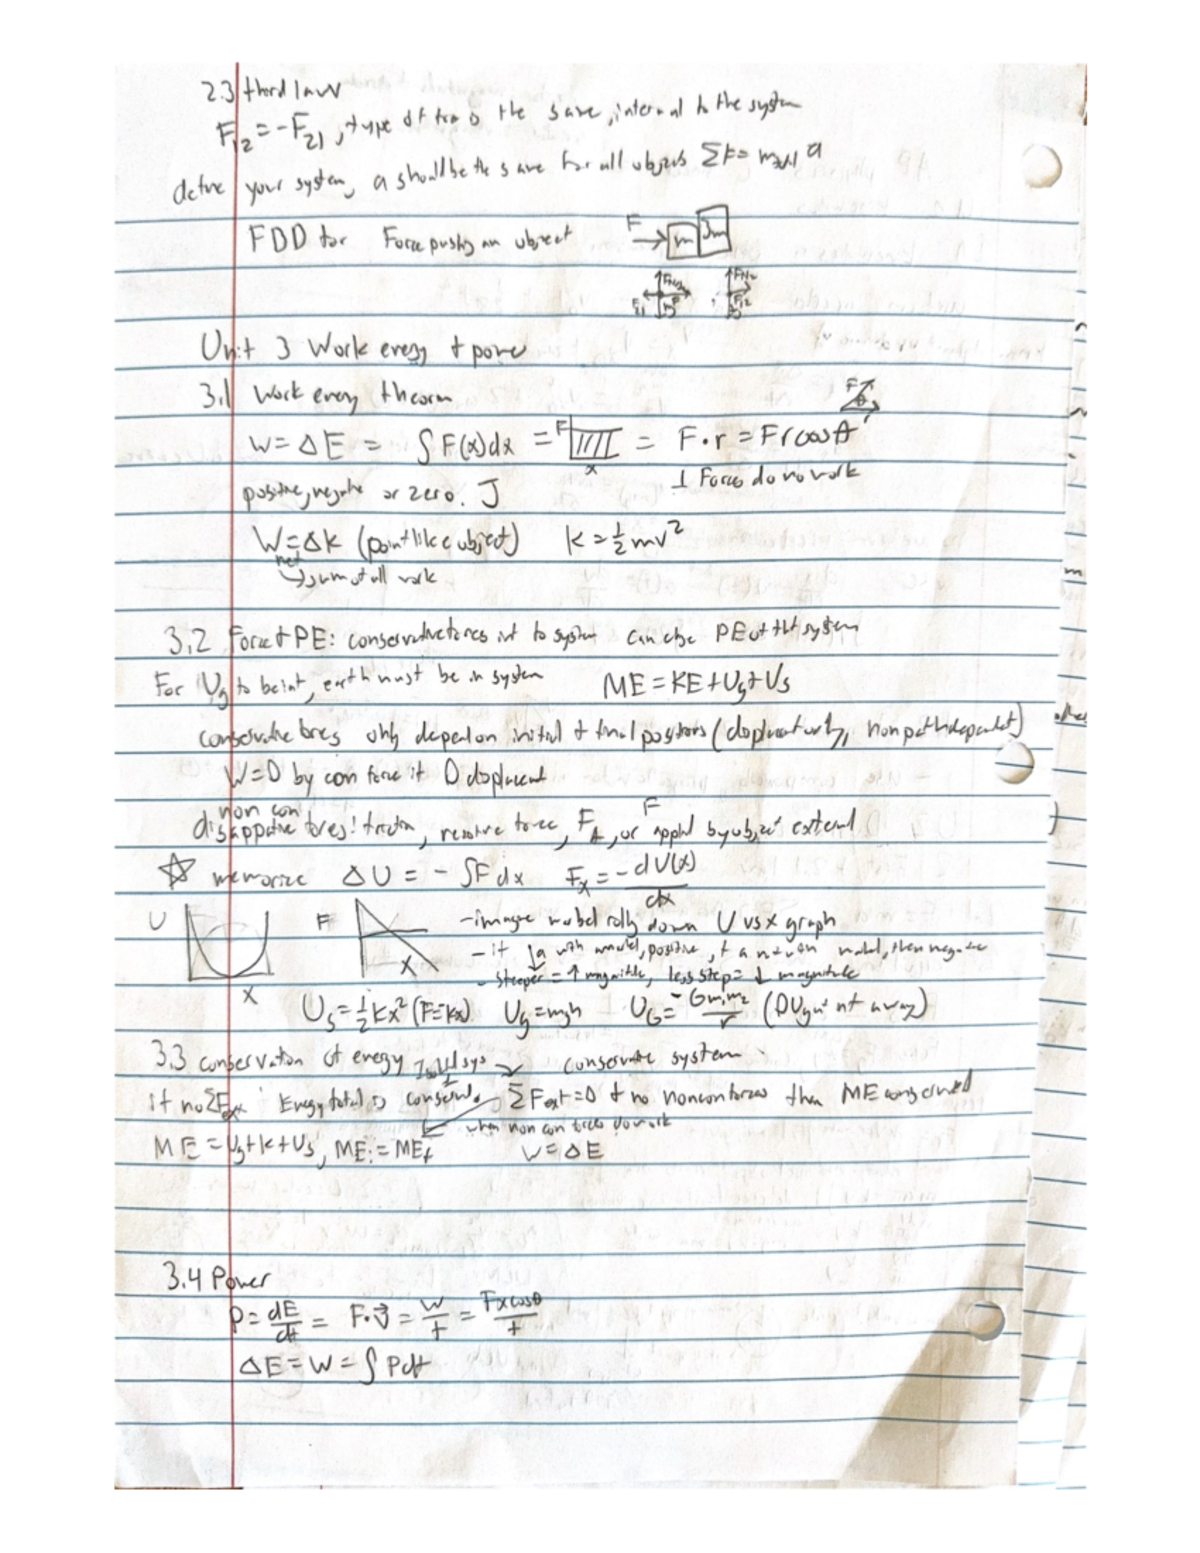 2.3 third law
F12 = -F21, type of force is the same, internal to the system
define your system, a should be the same for all objects ΣF = mtotal a
FDD for Force pushing an object F m 3m
Unit 3 Work energy + power
3.1 Work energy theorm
W = ΔE = ∫ F(x)dx = F x = F · r = Fr cos θ
positive, negative or zero. J ⊥ Forces do no work
W = ΔK (pointlike object) K = ½mv²
net → sum of all work
3.2 Force + PE: conservative forces int to system can chge PE of tht system
For Ug to be int, earth must be in system ME = KE + Ug + Us
conservative forces only depend on initial + final positions (displacement only, non path dependent)
W = 0 by con force if 0 displacement
non con
dissappative forces: friction, resistive force, FA, or F applied by object external
☆ memorize ΔU = - ∫F dx Fx = - dU(x)/dx
U x F x - imagine marbel rolling down U vs x graph
- if a with marbel, positive, if a not on marbel, then negative
- steeper = ↑ magnitude, less steep = ↓ magnitude
Us = ½kx² (F=kx) Ug = mgh UG = -Gm1m2/r (0 Ug inf away)
3.3 conservation of energy Isolated sys conservative system
if no ΣFext Energy total is conserved. ΣFext = 0 + no noncon forces then ME conserved
when non con forces do work
ME = Ug + K + Us, MEi = MEf W = ΔE
3.4 Power
P = dE/dt = F · v⃗ = W/t = Fx cosθ/t
ΔE = W = ∫ Pdt